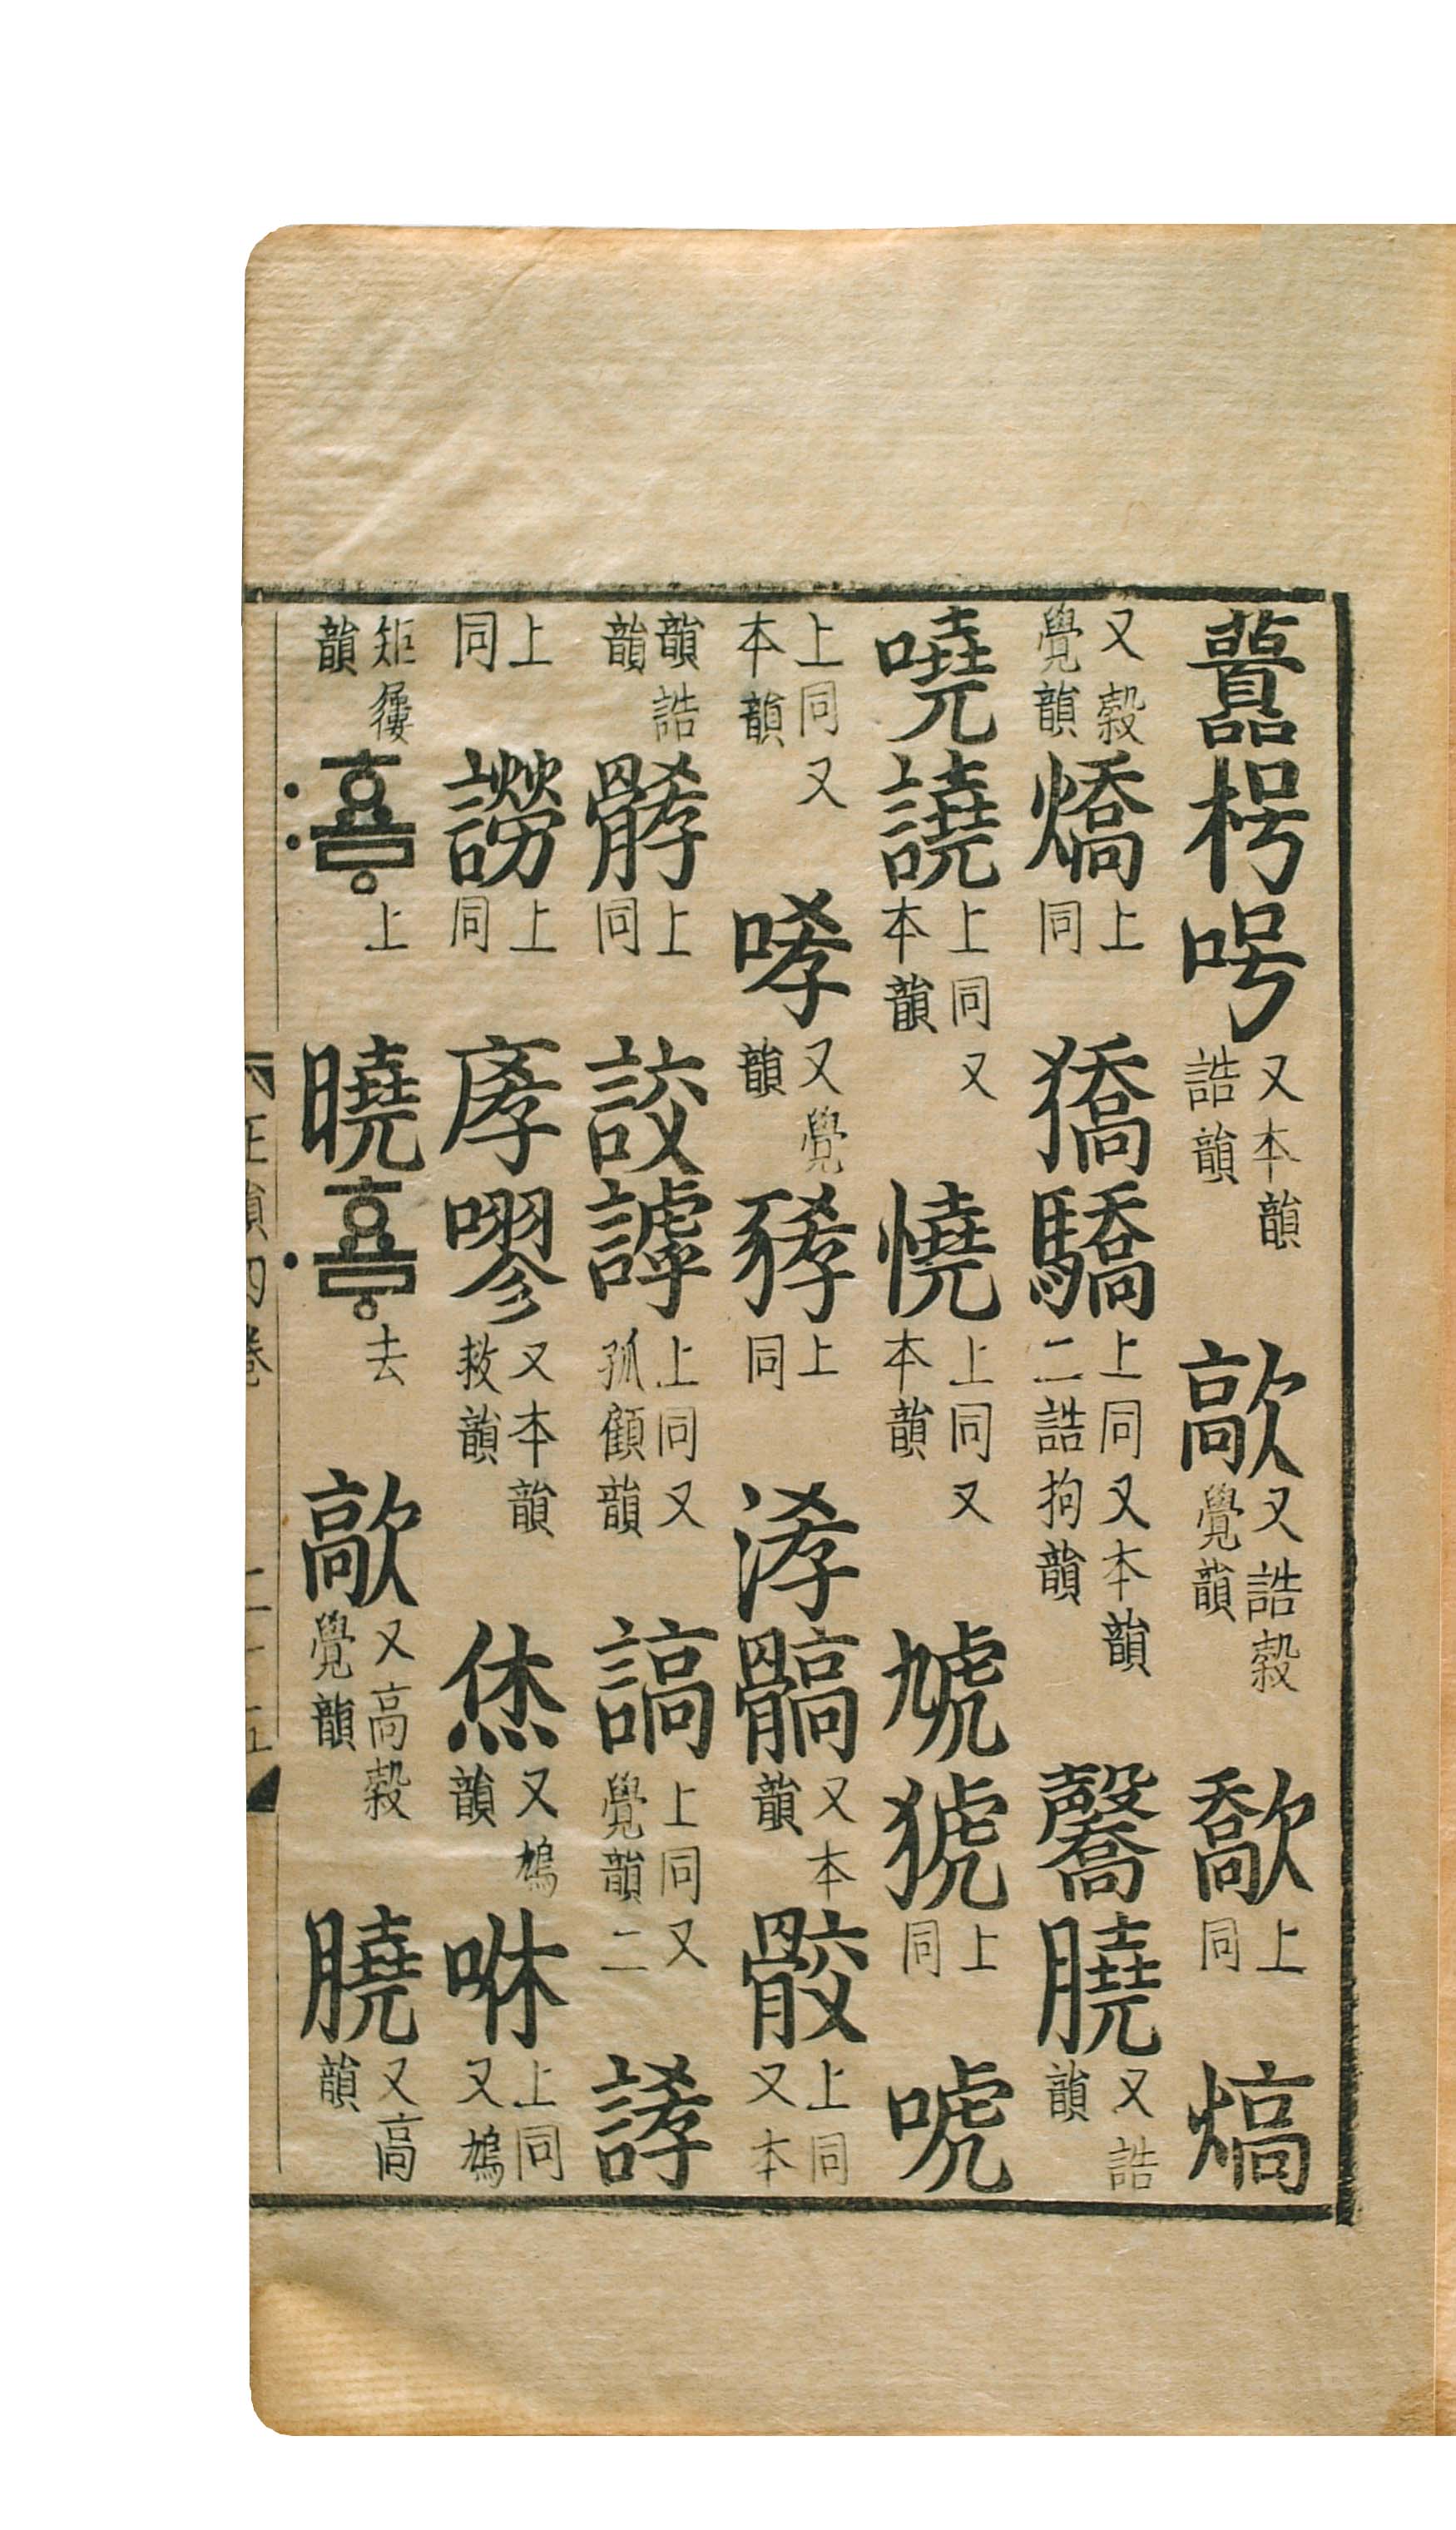 枵呺又本韻誥韻歊又誥穀覺韻上同熇
又穀覺韻燆上同獢驕上同又本韻二誥拘韻毊膮又誥韻
嘵譊上同又本韻憢上同又本韻虓猇上同唬
上同又本韻哮又覺韻上同涍髇又本韻骹上同又本
韻誥韻上同詨謼上同又孤顧韻謞上同又二覺韻誟
上同䜎上同庨嘐又本韻救韻烋又鳩韻咻上同又鳩
矩屨韻효ᇢ〯上曉효ᇢ〮去歊又高穀覺韻膮又高韻